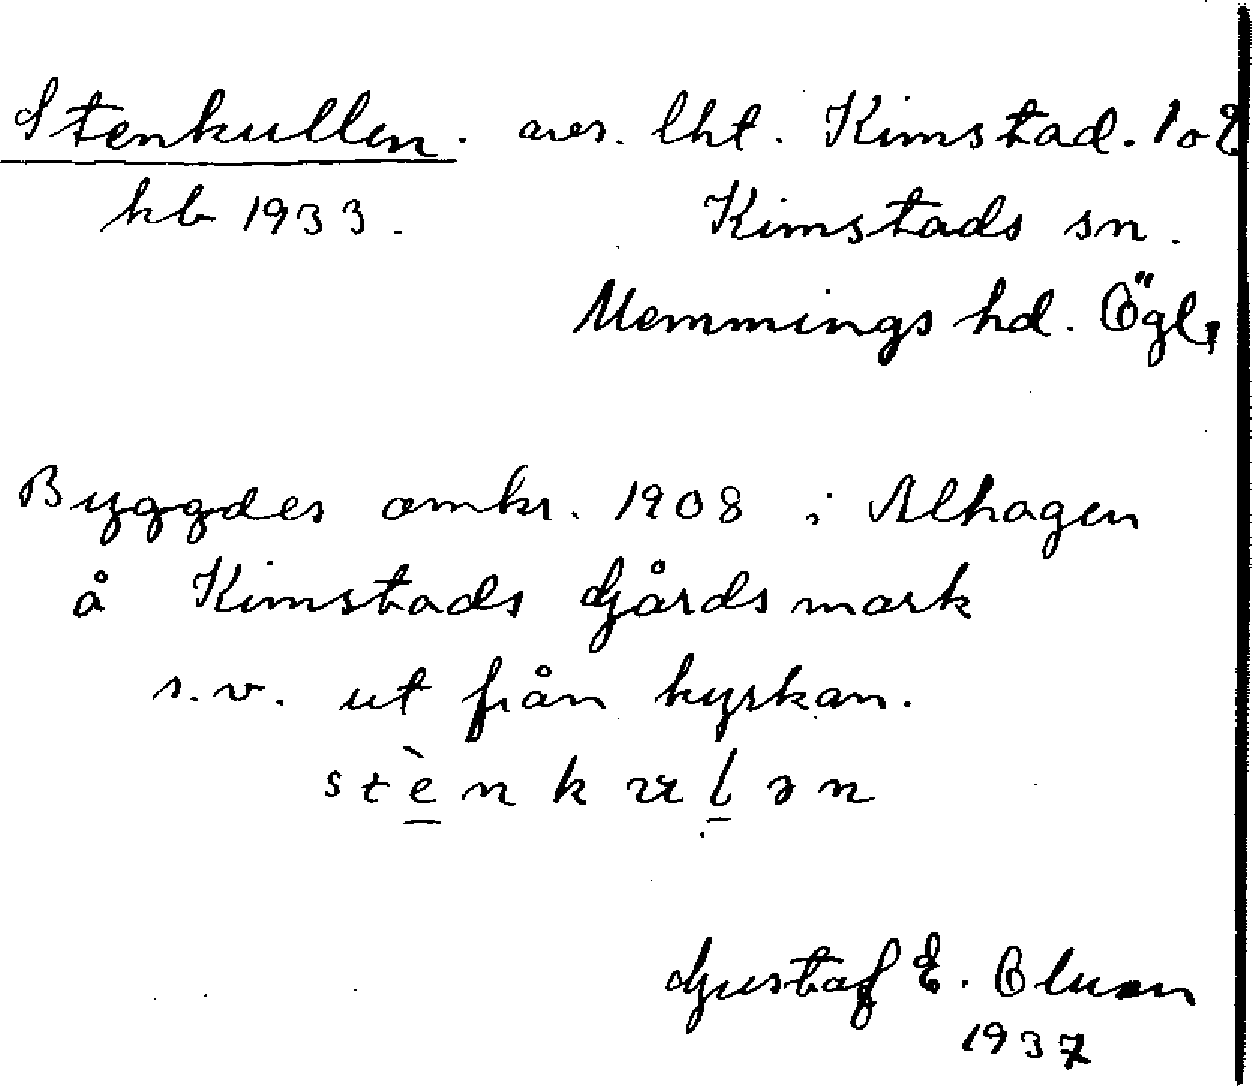 Stenkullen. avs. lht. Kimstad. 1 o 2
kb 1933. Kimstads sn.
Memmings hd. Ögl.
Byggdes omkr. 1908 i Alhagen
å Kimstads Gårds mark
s.v. ut från kyrkan.
stènkulən
Gustaf E.
1937